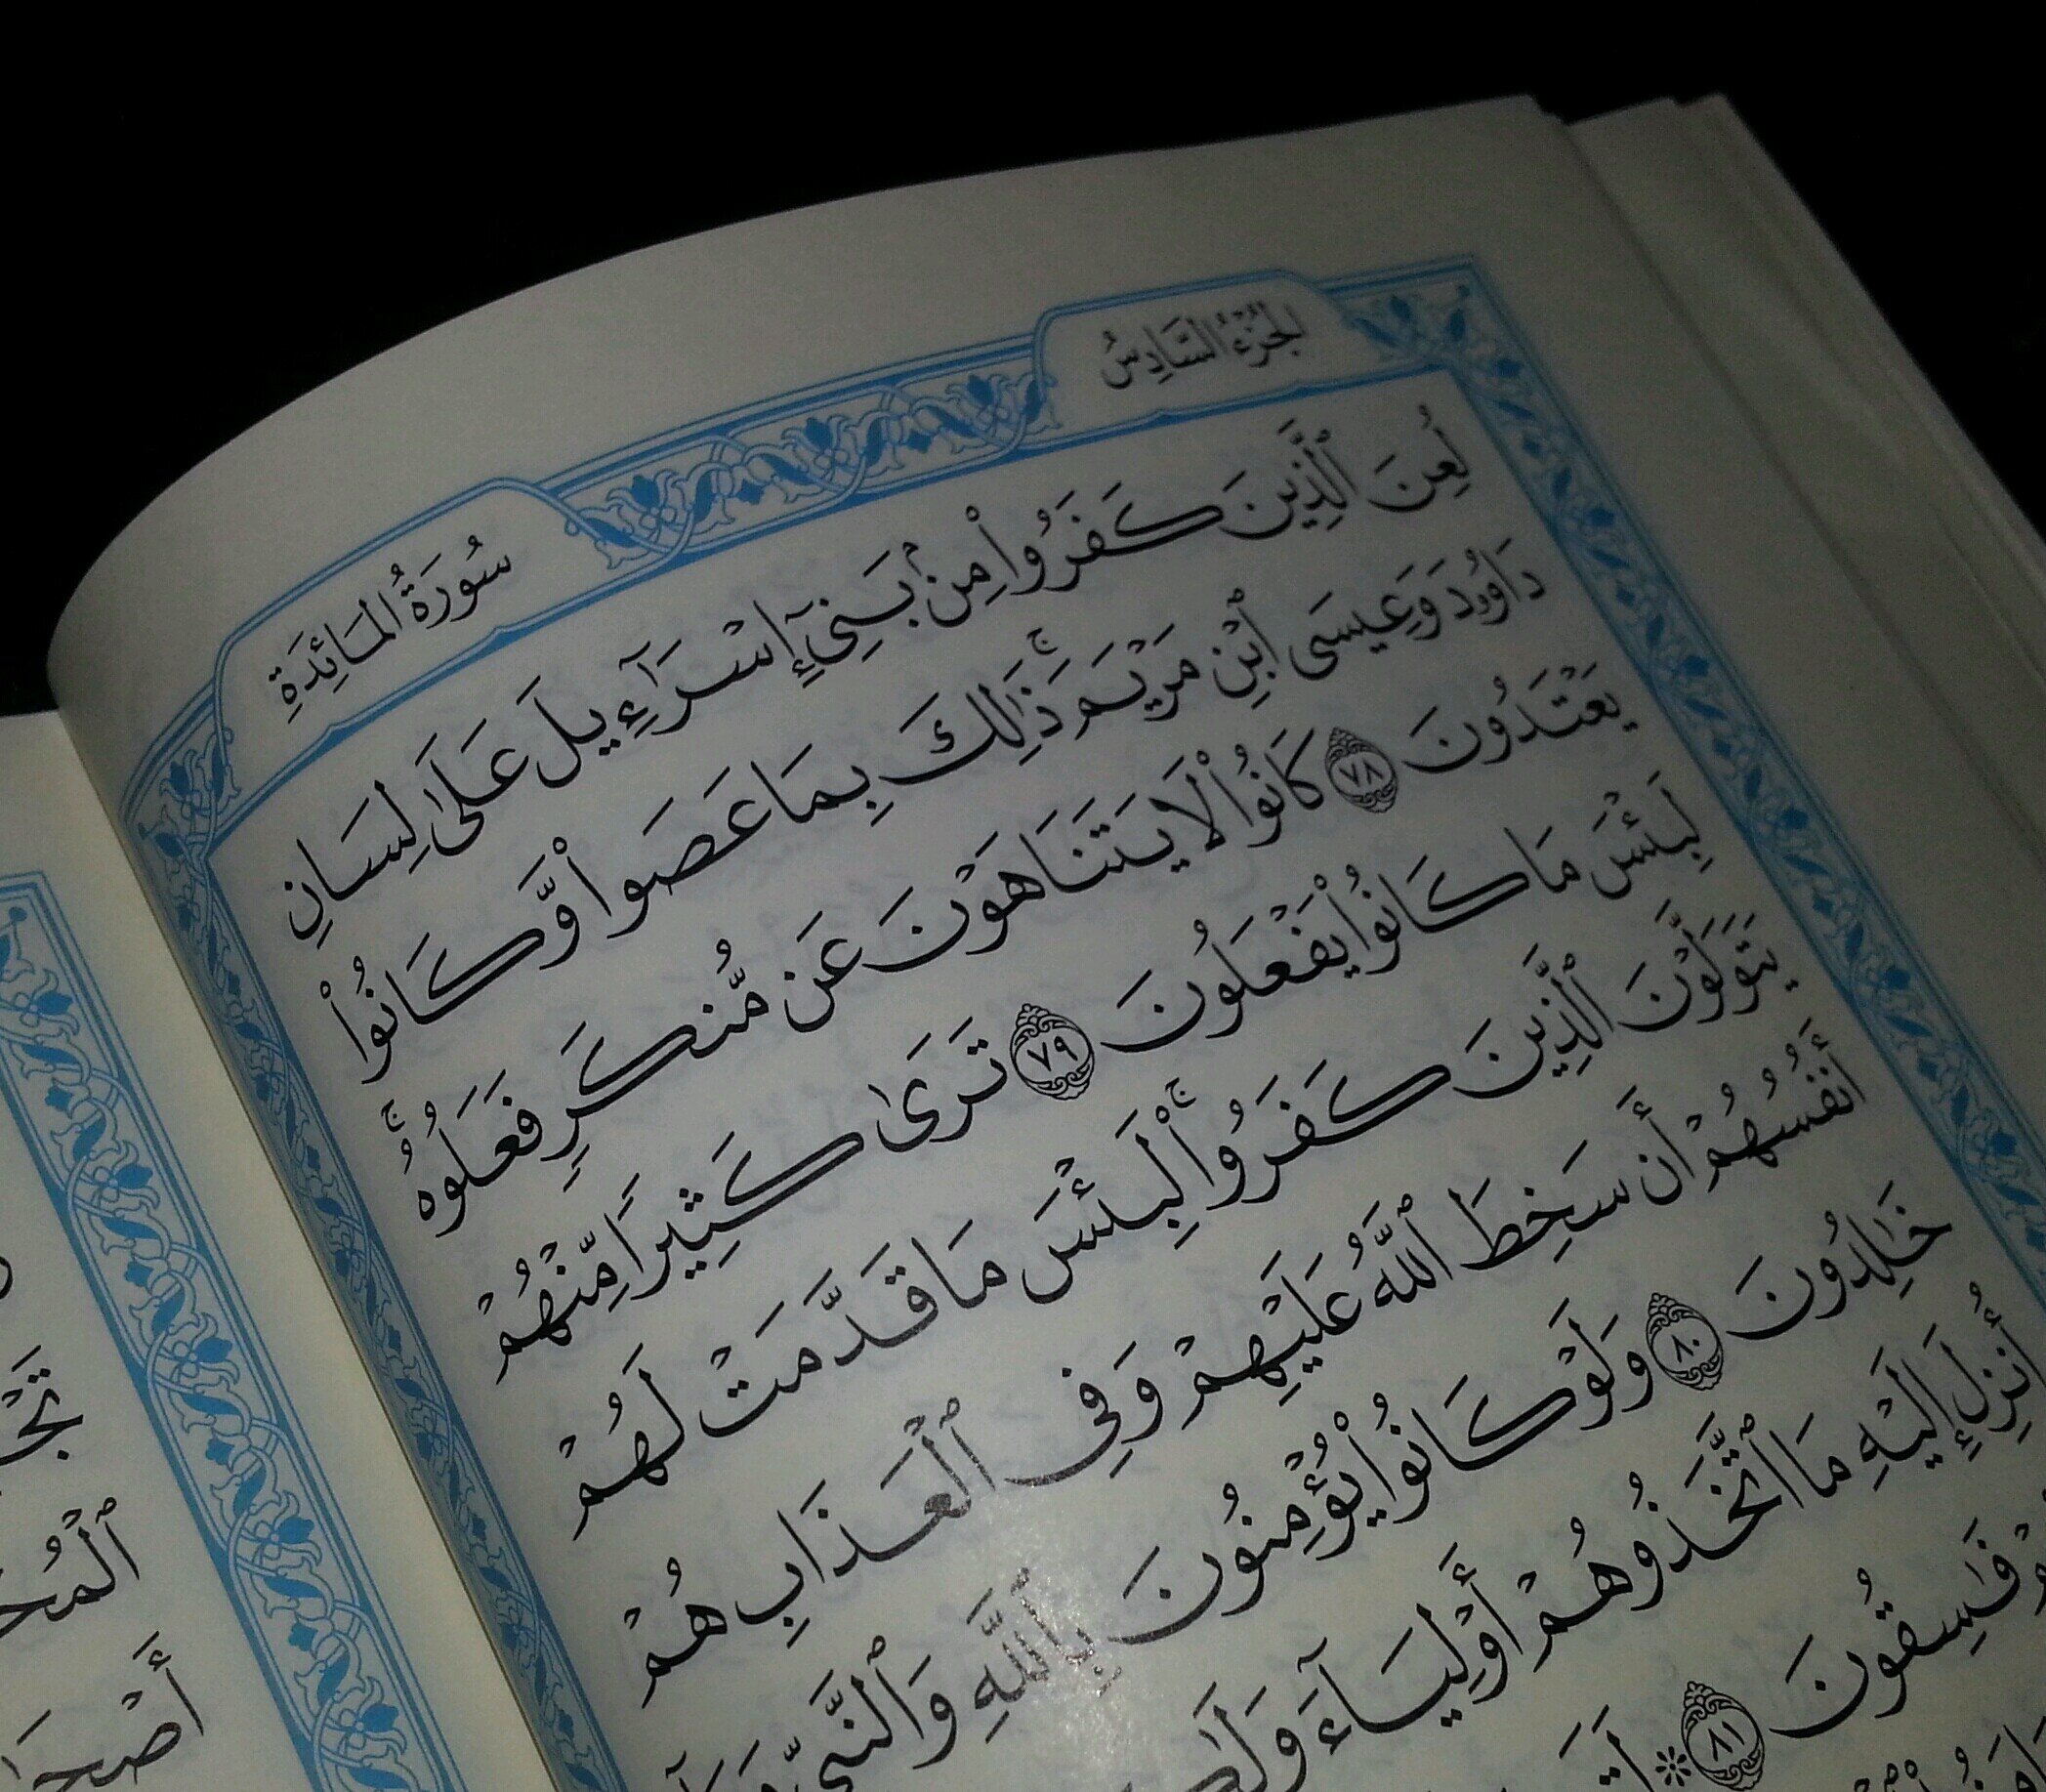 الجُزْءُ السَّادِسُ
سُورَةُ المَائِدَةِ
لُعِنَ ٱلَّذِينَ كَفَرُوا۟ مِنۢ بَنِىٓ إِسْرَٰٓءِيلَ عَلَىٰ لِسَانِ
دَاوُۥدَ وَعِيسَى ٱبْنِ مَرْيَمَ ۚ ذَٰلِكَ بِمَا عَصَوا۟ وَّكَانُوا۟
يَعْتَدُونَ ٧٨ كَانُوا۟ لَا يَتَنَاهَوْنَ عَن مُّنكَرٍ فَعَلُوهُ ۚ
لَبِئْسَ مَا كَانُوا۟ يَفْعَلُونَ ٧٩ تَرَىٰ كَثِيرًا مِّنْهُمْ
يَتَوَلَّوْنَ ٱلَّذِينَ كَفَرُوا۟ ۚ لَبِئْسَ مَا قَدَّمَتْ لَهُمْ
أَنفُسُهُمْ أَن سَخِطَ ٱللَّهُ عَلَيْهِمْ وَفِى ٱلْعَذَابِ هُمْ
خَٰلِدُونَ ٨٠ وَلَوْ كَانُوا۟ يُؤْمِنُونَ بِٱللَّهِ وَٱلنَّبِىِّ
أُنزِلَ إِلَيْهِ مَا ٱتَّخَذُوهُمْ أَوْلِيَآءَ
فَٰسِقُونَ ٨١
ٱلْمُحْ
أَصْحَا